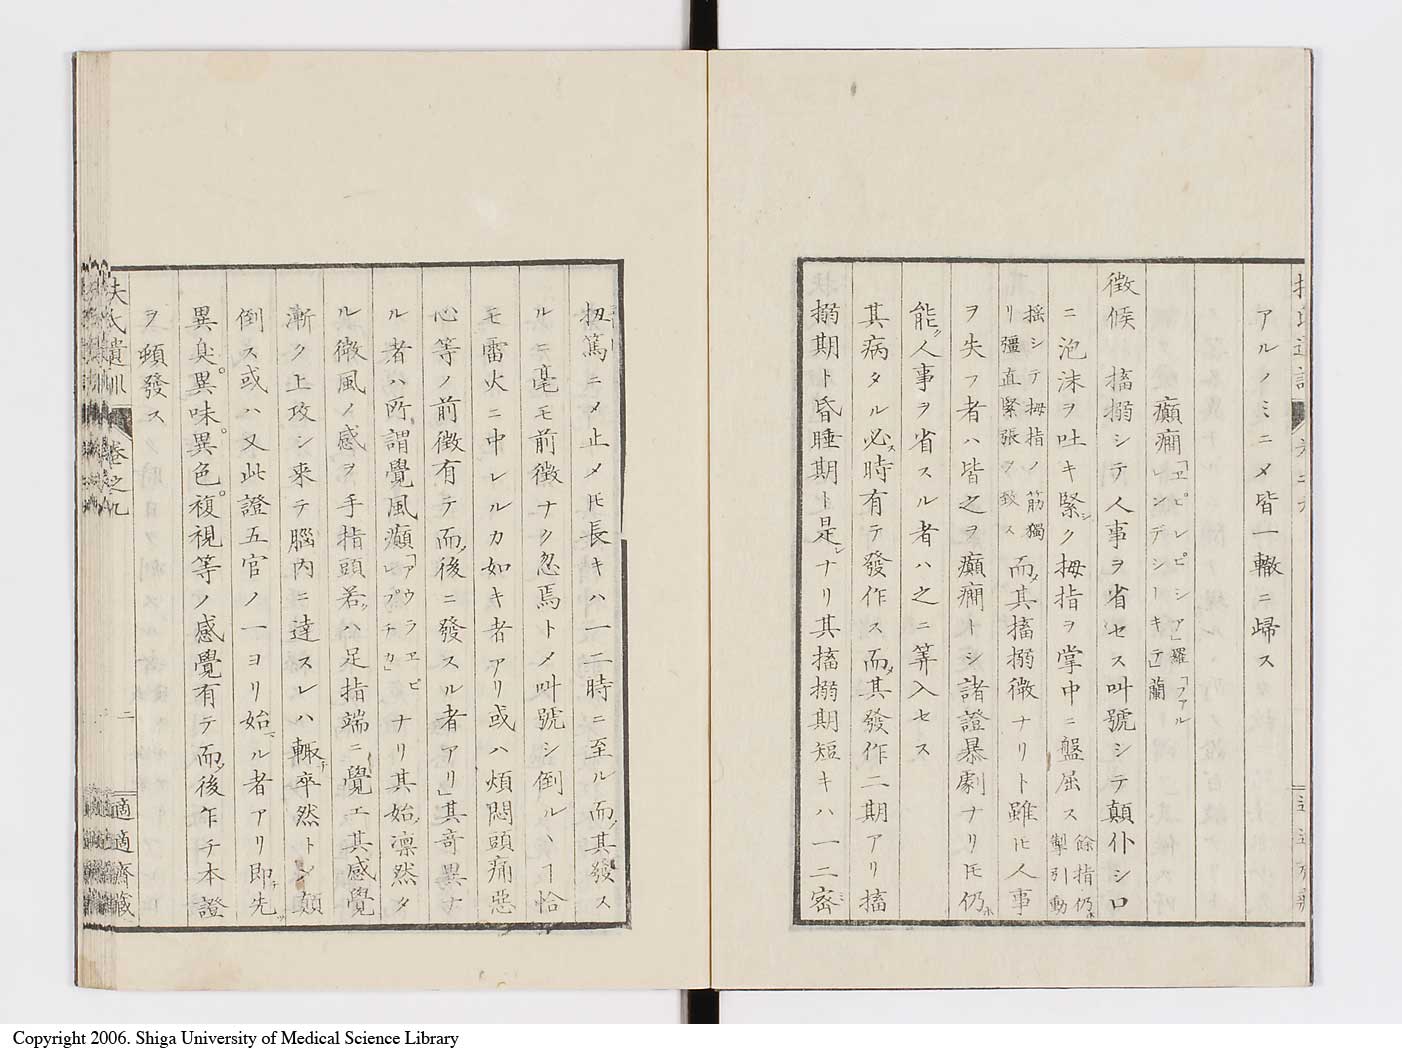 アルノミニメ皆一轍ニ歸ス
癲癇「ヱピレピシア」羅「ファルレンデシーキテ」蘭
徴候 搐搦シテ人事ヲ省セス叫號シテ顛仆シ口
ニ泡沫ヲ吐キ緊シク拇指ヲ掌中ニ盤屈ス餘指仍ホ掣引動
揺シテ拇指ノ筋獨リ彊直緊張ヲ致ス而メ其搐搦微ナリト雖ヒ人事
ヲ失フ者ハ皆之ヲ癲癇トシ諸證暴劇ナリヒ仍ホ
能ク人事ヲ省スル者ハ之ニ筭入セス
其病タル必ス時有テ發作ス而メ其發作二期アリ搐
搦期ト昏睡期ト是レナリ其搐搦期短キハ一二密
扨篤ニメ止メヒ長キハ一二時ニ至ル而メ其發ス
ルニ毫モ前徴ナク忽焉トメ叫號シ倒ルヽヿ恰
モ雷火ニ中レルカ如キ者アリ或ハ煩悶頭痛惡
心等ノ前徴有テ而メ後ニ發スル者アリ」其奇異ナ
ル者ハ所謂覺風癲「アウラヱピレプチカ」ナリ其始メ凛然タ
ル微風ノ感ヲ手指頭若クハ足指端ニ覺エ其感覺
漸ク上攻シ来テ腦内ニ達スレハ輙チ卒然トシ顛
倒ス或ハ又此證五官ノ一ヨリ始マル者アリ即チ先ツ
異臭。異味。異色。複視等ノ感覺有テ而メ後乍チ本證
ヲ頓發ス
扶氏遺訓 卷之九 二 適適齋藏
Copyright 2006. Shiga University of Medical Science Library